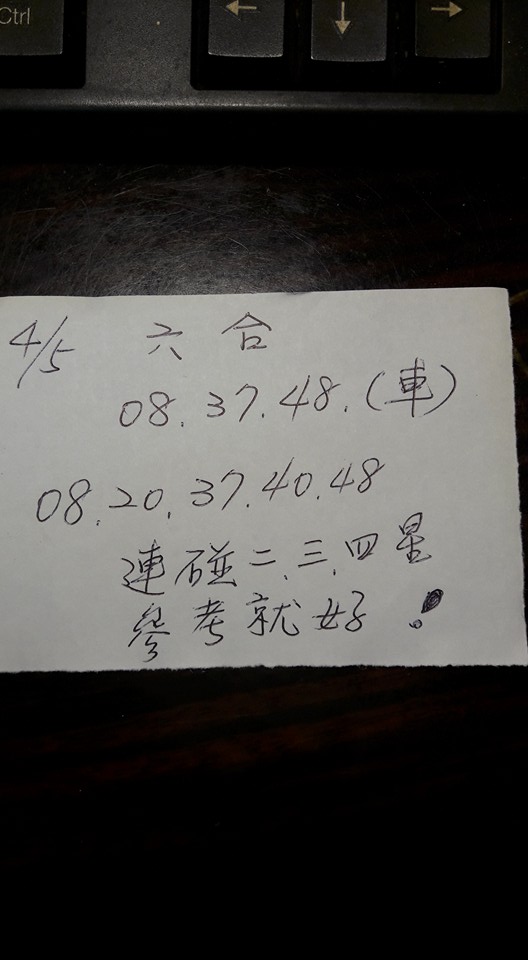 Ctrl
← ↓ →
4/5 六合
08.37.48.(車)
08.20.37.40.48
連碰二、三、四星
參考就好!